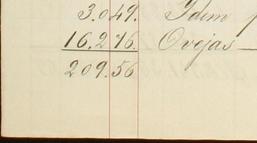 3.049. Idem p
16.276. Ovejas
209.56